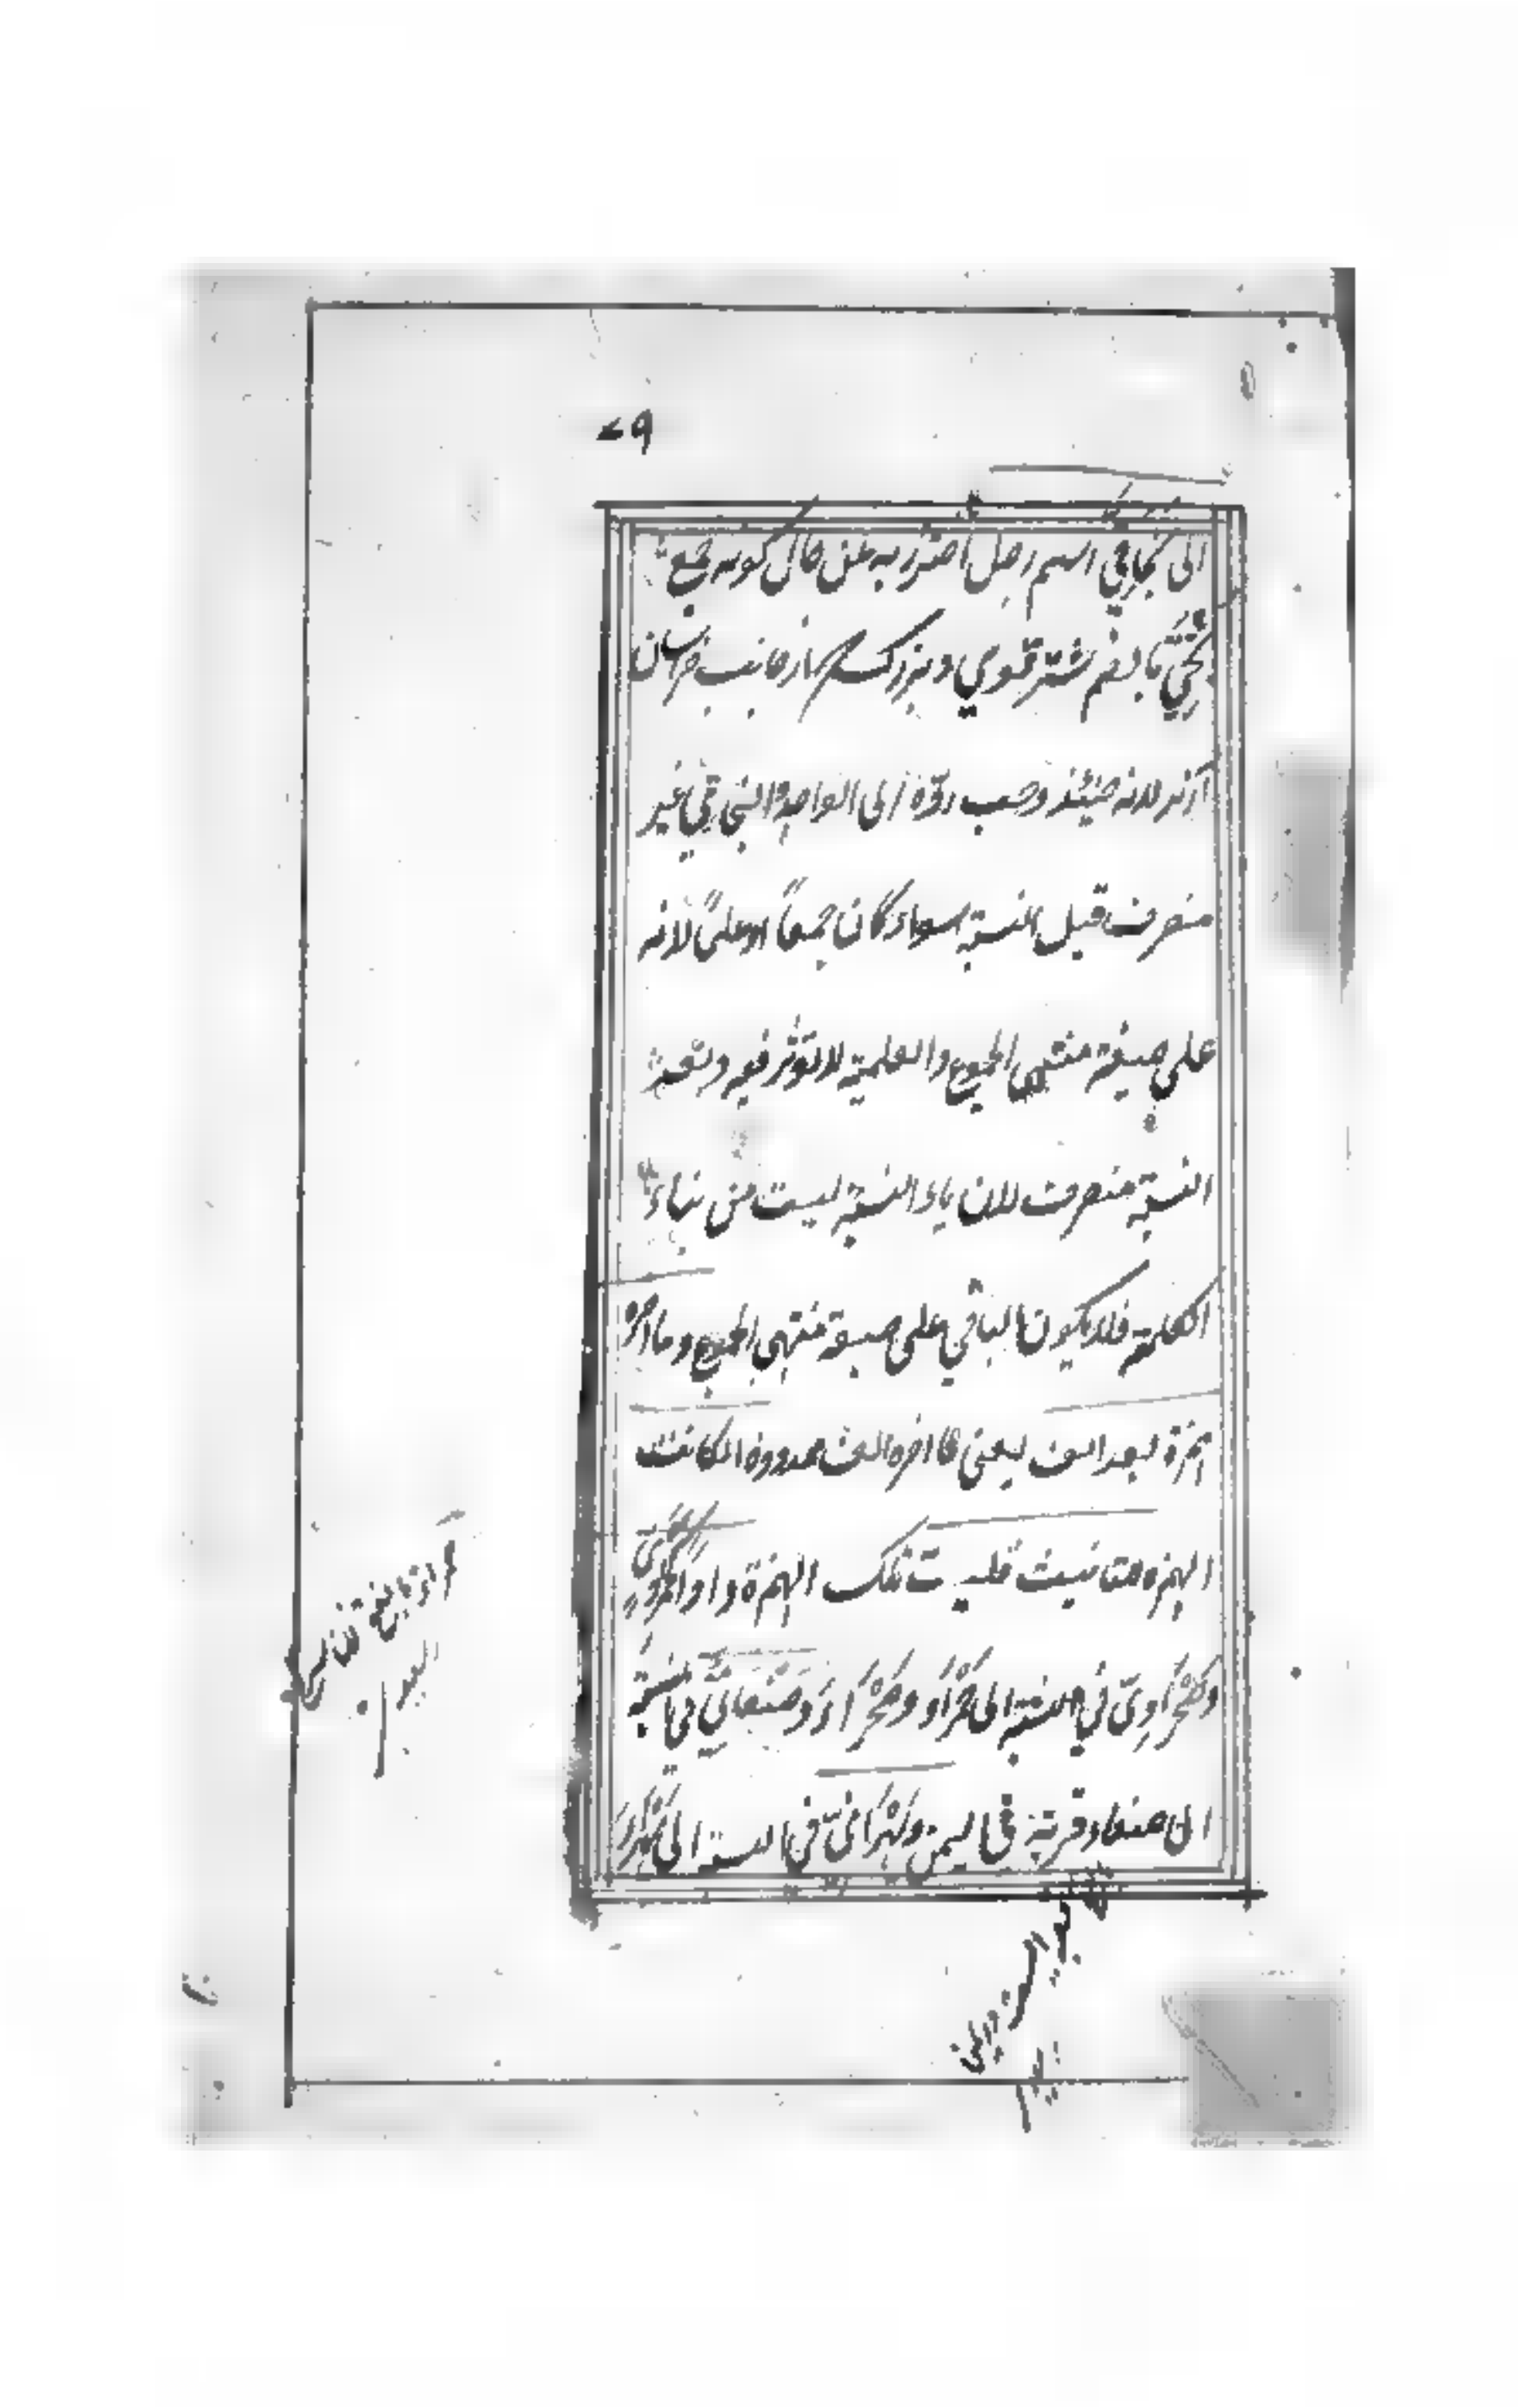 ٧٩
الى بخاتي اسم رجل احترز به عن حال كونه جمع
بختي بالضم شتر قوي وبزرك كه از جانب خراسان
آرند لانه حينئذ وجب رده الى الواحد والبخاتي غير
منصرف قبل النسبة سواء كان جمعا او علما لانه
على صيغة منتهى الجموع والعلمية لا تؤثر فيه وبعد
النسبة منصرف لان ياء النسبة ليست من بناء
الكلمة فلا يكون الباقي على صيغة منتهى الجموع وما آخره
همزة بعد الف يعني ما آخره الف ممدودة ان كانت
الهمزة للتانيث قلبت تلك الهمزة واوا كحمراوي
وصحراوي في النسبة الى حمراء وصحراء وصنعاني في النسبة
الى صنعاء قرية في اليمن وبهراني في النسبة الى بهراء